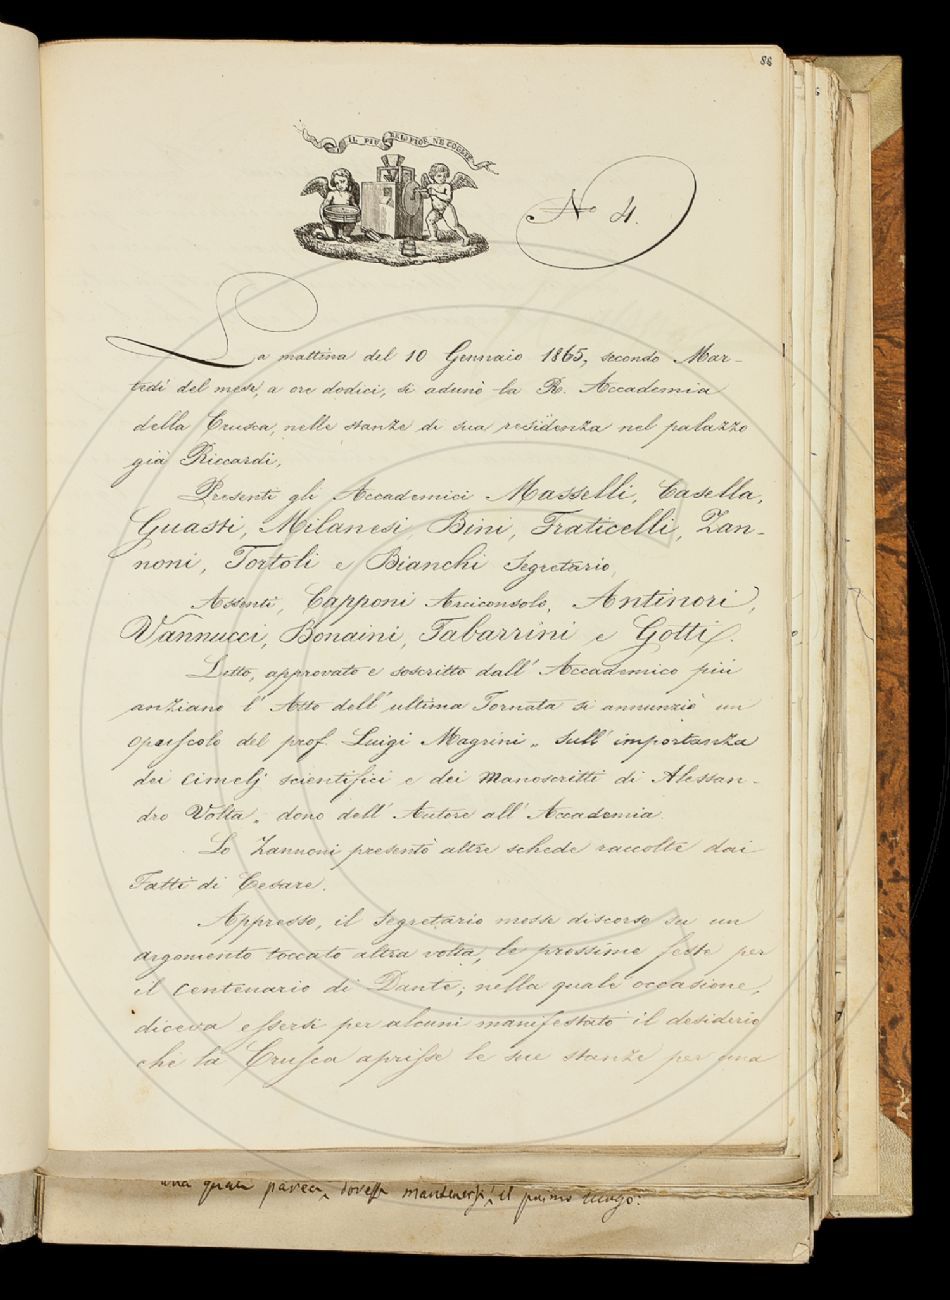 86
IL PIÙ BEL FIOR NE COGLIE
No 4.
La mattina del 10 Gennaio 1865, secondo Mar-
tedì del mese, a ore dodici, si adunò la R. Accademia
della Crusca, nelle stanze di sua residenza nel palazzo
già Riccardi,
Presenti gli Accademici Masselli, Casella,
Guasti, Milanesi, Bini, Fraticelli, Zan-
noni, Tortoli e Bianchi Segretario,
Assenti, Capponi Arciconsolo, Antinori,
Vannucci, Bonaini, Tabarrini e Gotti.
Letto, approvato e soscritto dall' Accademico più
anziano l' Atto dell' ultima Tornata si annunziò un
opuscolo del prof. Luigi Magrini „ Sull' importanza
dei cimelj scientifici e dei manoscritti di Alessan-
dro Volta „ dono dell' Autore all' Accademia.
Lo Zannoni presentò altre schede raccolte dai
Fatti di Cesare.
Appresso, il Segretario messe discorso su un
argomento toccato altra volta, le prossime feste per
il centenario di Dante; nella quale occasione,
diceva essersi per alcuni manifestato il desiderio
che la Crusca aprisse le sue stanze per una
una parea, dovesse mantenersi il primo luogo.